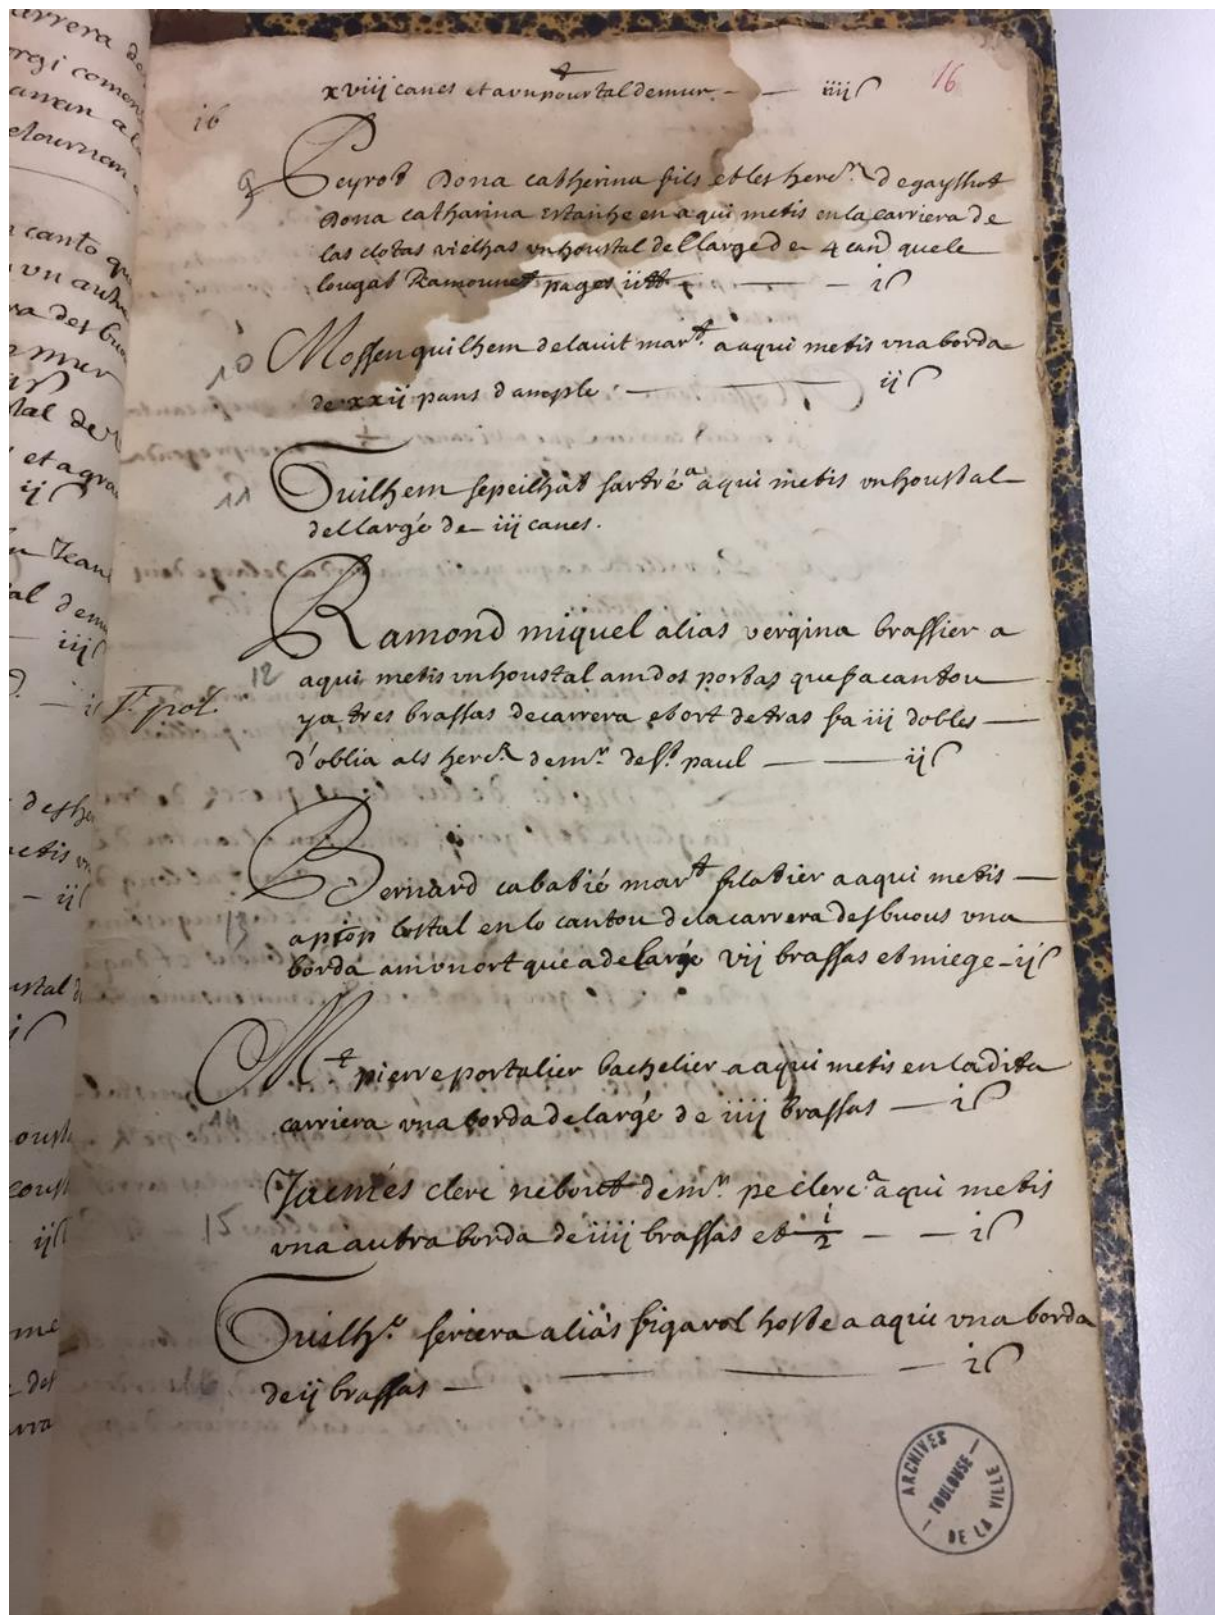 xviij canes et a vn pourtal de mur — — iiij ſ
16
16
9 Peyrot Dona catherina fils et les herers de gaylhot
Dona catharina en aqui metis en la carriera de
las clotas vielhas vn houstal del large de 4 cand que le
lougat Ramounet pages — — i ſ
10 Mossen guilhem de lauit mart. a aqui metis vna borda
de xxij pans d'ample — — ij ſ
11 Guilhem sepeilhat sartré a aqui metis vn houstal
del largé de iij canes.
Ramond miquel alias vergina brassier a
12 aqui metis vn houstal am dos portas que fa cantou
y a tres brassas de carrera et ort detras fa iij dobles —
d'oblia als herers de mr. de st. paul — — ij ſ
Bernard cabatié mart filatier a aqui metis —
13 aprop lostal en lo cantou de la carrera des buous vna
borda am vn ort que a de largé vij brassas et miege — ij ſ
Mt pierre portalier bachelier a aqui metis en la dita
14 carriera vna borda de largé de iiij brassas — i ſ
Jaemés clerc nebout de mr. pe clerc a aqui metis
15 vna autra borda de iiij brassas et 1/2 — — i ſ
Guilhe. seriera aliàs figarol hoste a aqui vna borda
de ij brassas — — i ſ
ARCHIVES
— TOULOUSE —
DE LA VILLE